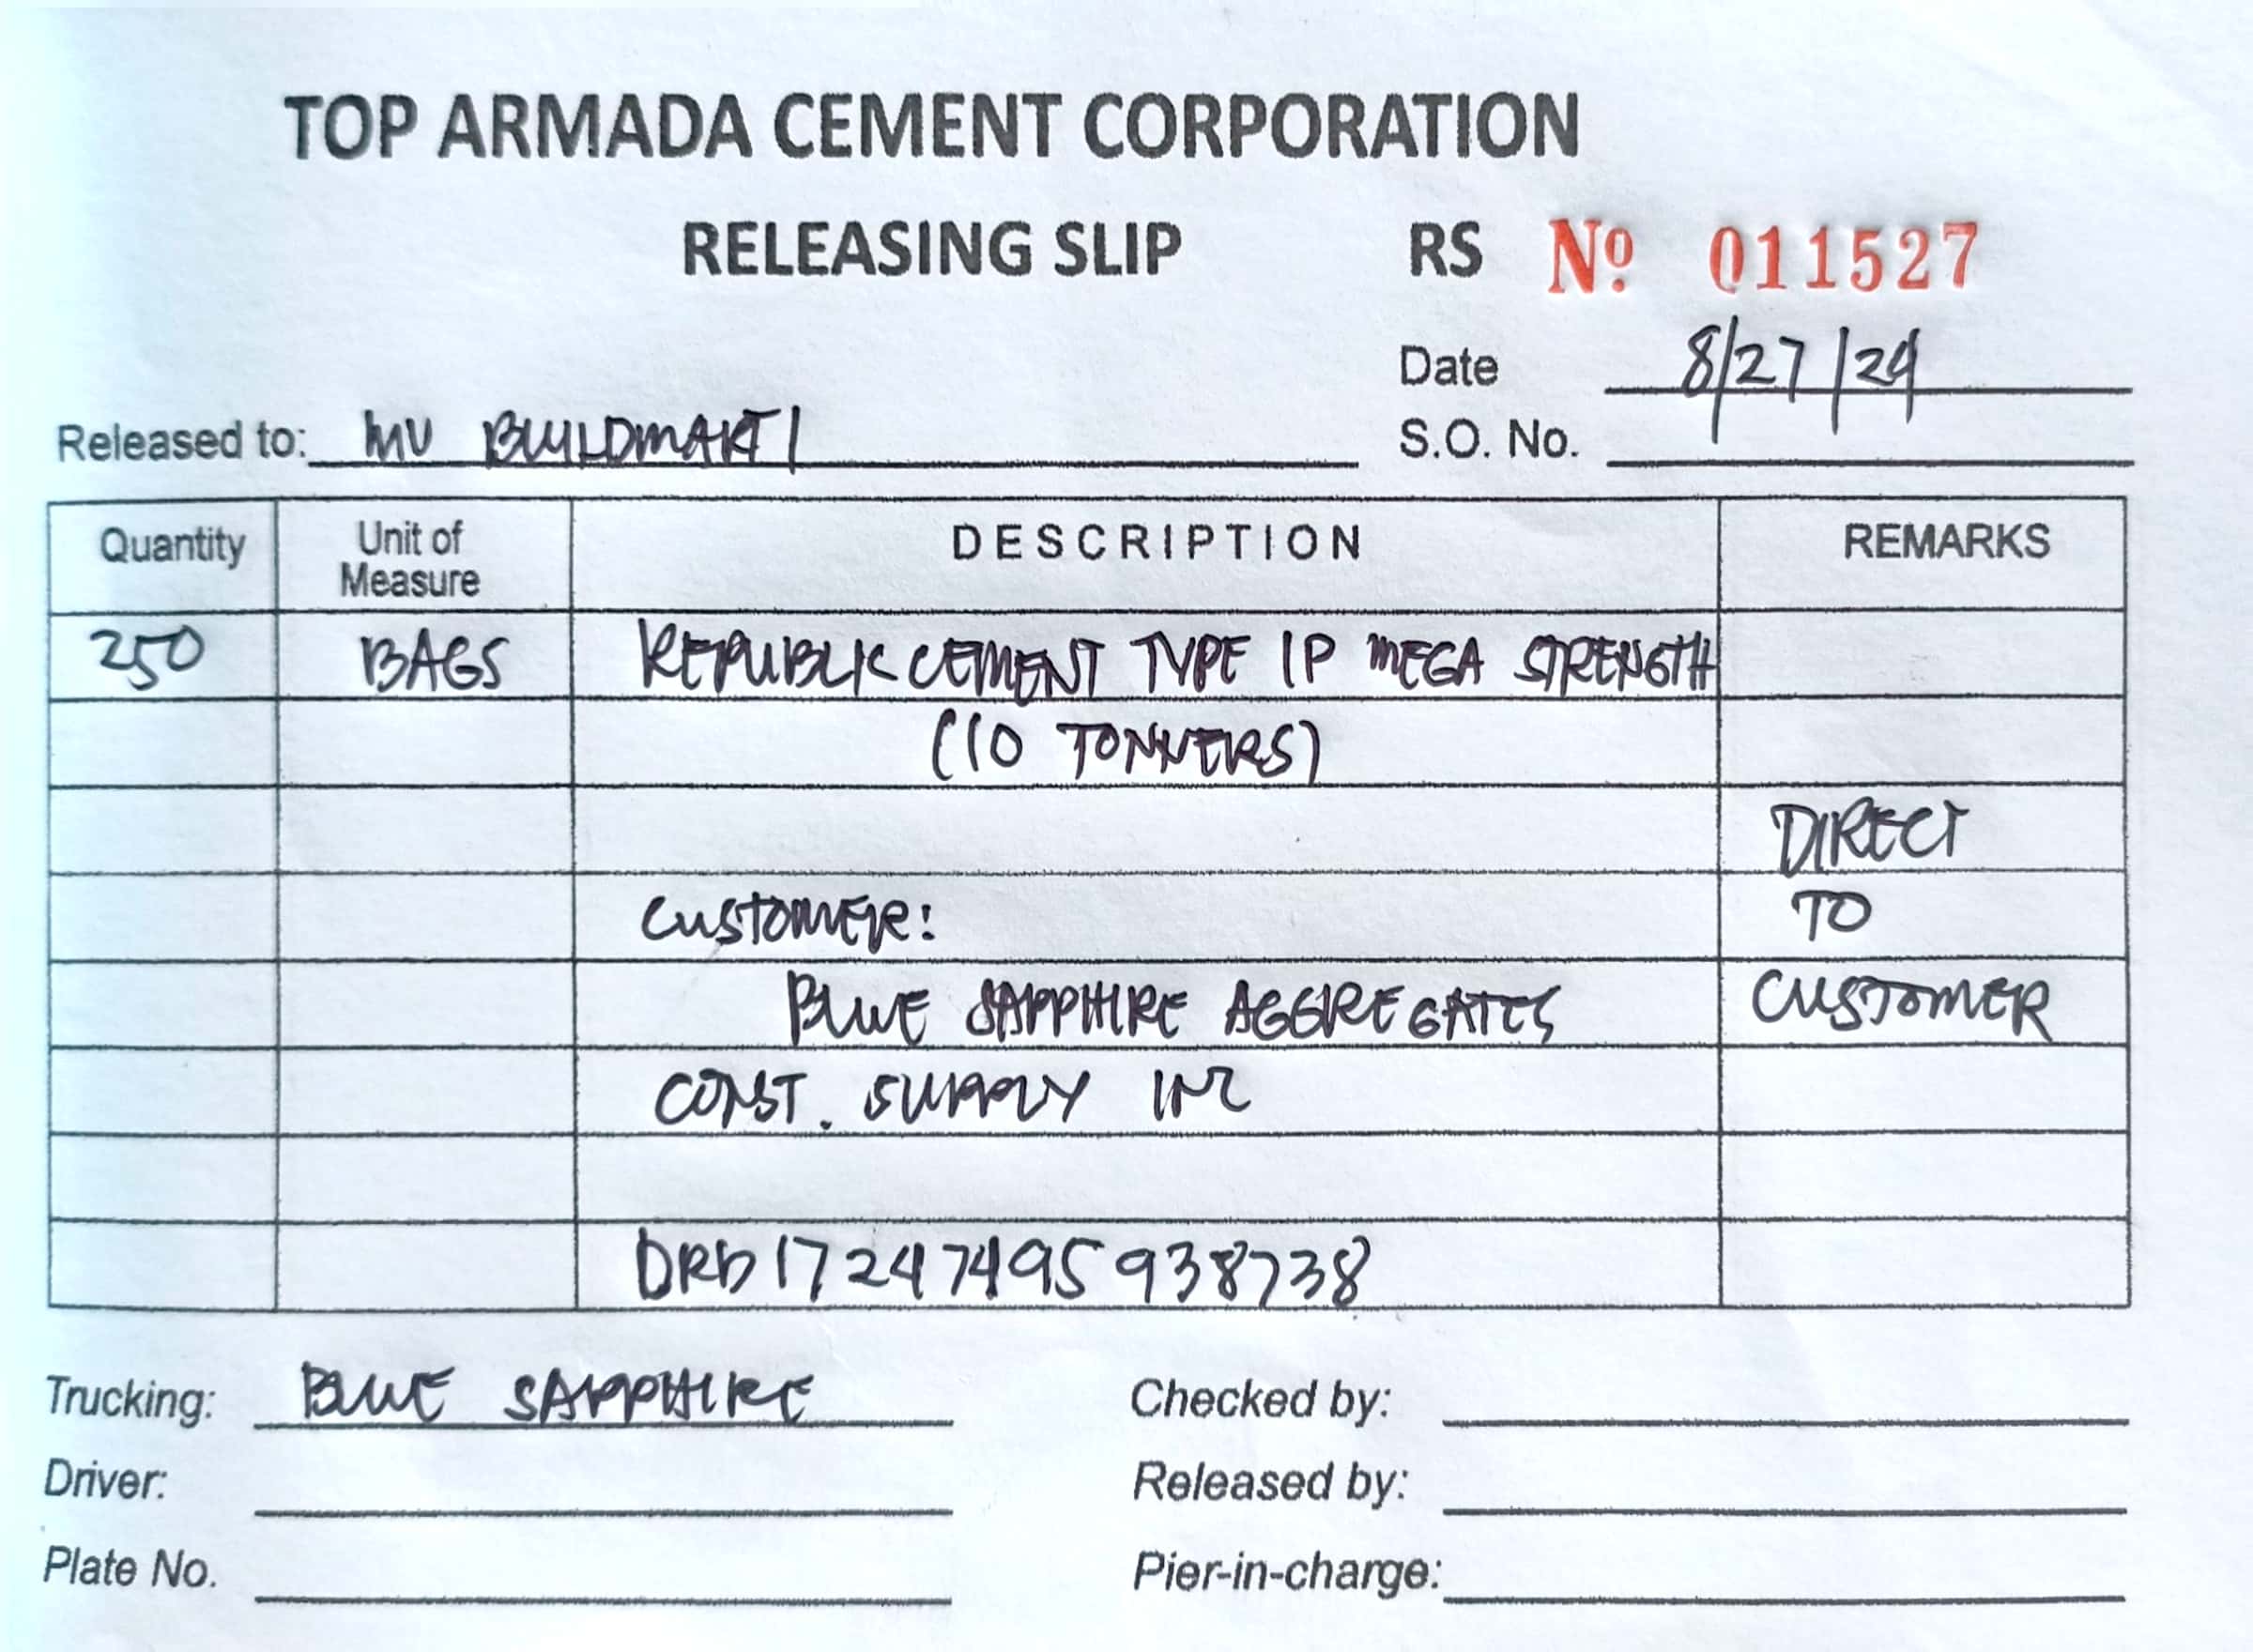 TOP ARMADA CEMENT CORPORATION
RELEASING SLIP RS Nº 011527
Date 8/27/24
Released to: MV BUILDMART 1 S.O. No.
Quantity Unit of Measure DESCRIPTION REMARKS
250 BAGS REPUBLIC CEMENT TYPE 1P MEGA STRENGTH
(10 TONNERS)
DIRECT
CUSTOMER: TO
BLUE SAPPHIRE AGGREGATES CUSTOMER
CONST. SUPPLY INC
DRD17247495938738
Trucking: BLUE SAPPHIRE Checked by:
Driver: Released by:
Plate No. Pier-in-charge: